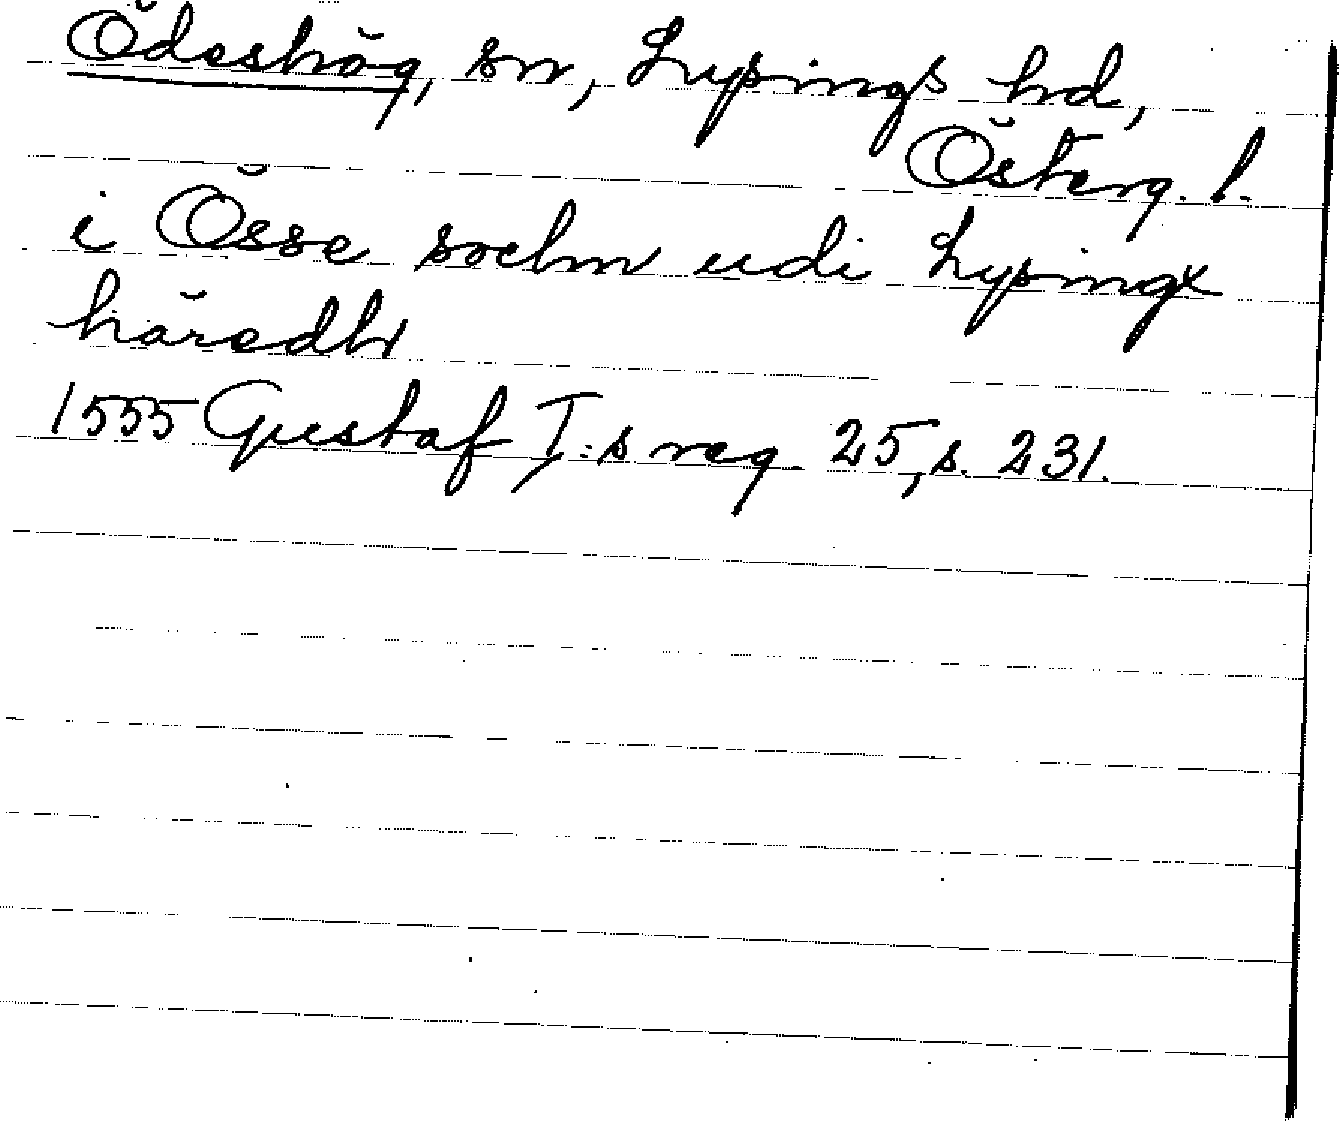 Ödeshög, sn, Lysings hd,
Österg. l.
i Össe sochn udi Lysingx
häredh
1555 Gustaf I:s reg 25, s. 231.